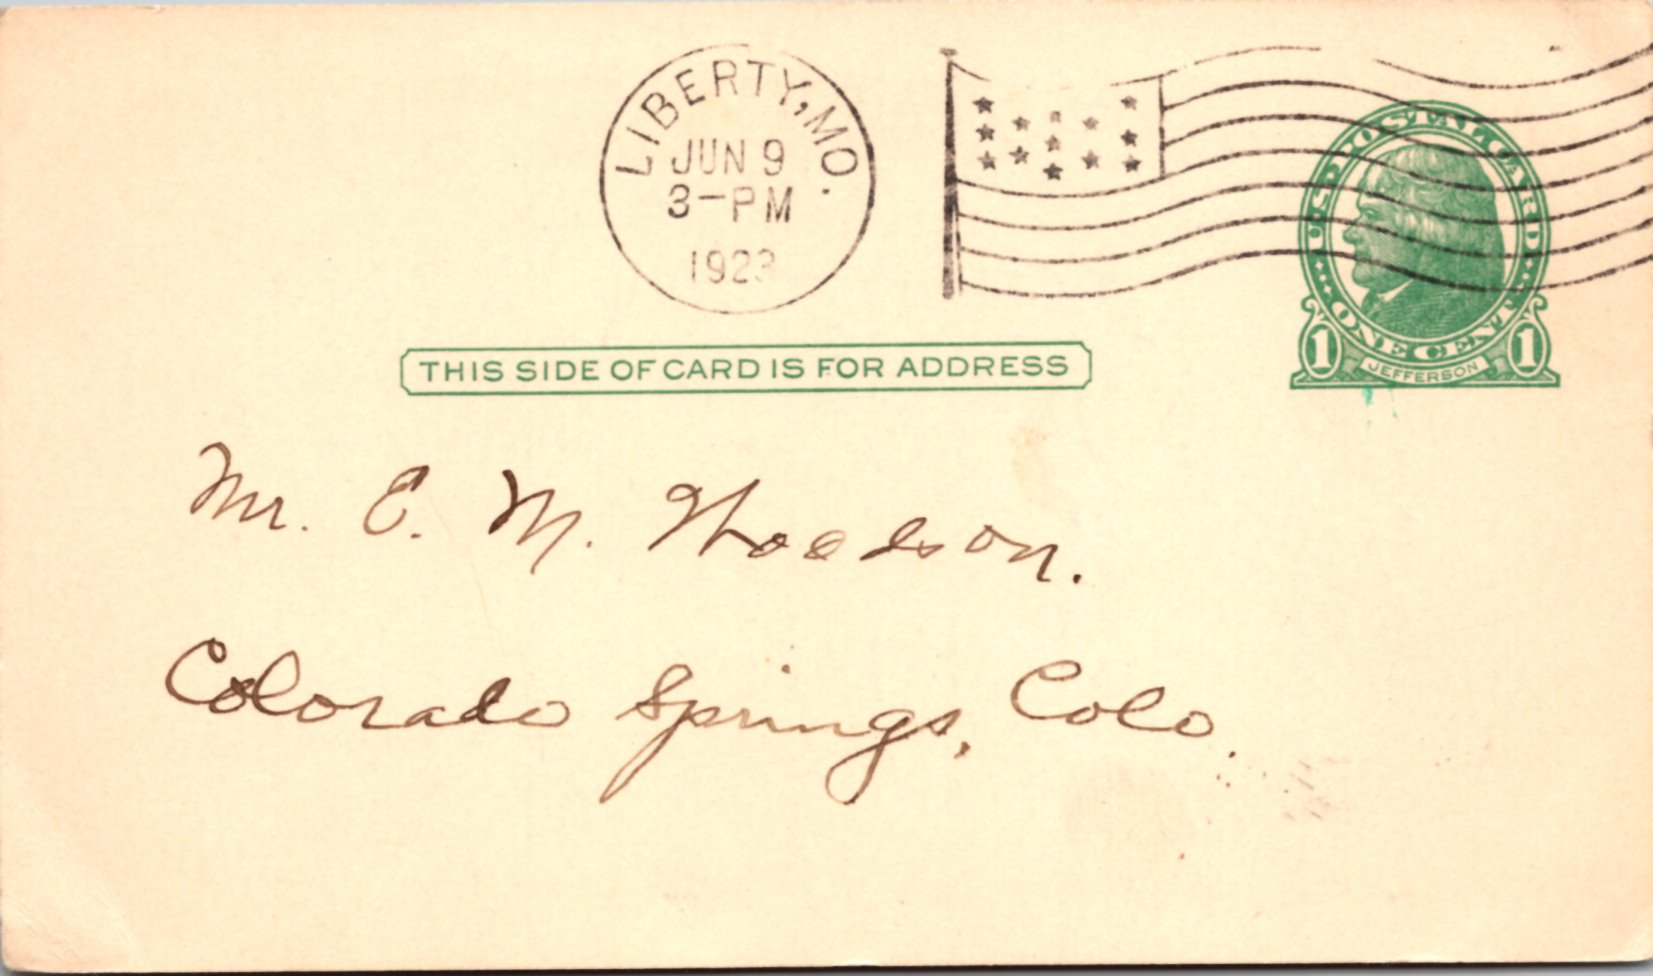 LIBERTY, MO.
JUN 9
3-PM
1923
U.S. POSTAL CARD
ONE CENT
1 JEFFERSON 1
THIS SIDE OF CARD IS FOR ADDRESS
Mr. E. M. Woodson.
Colorado Springs, Colo.